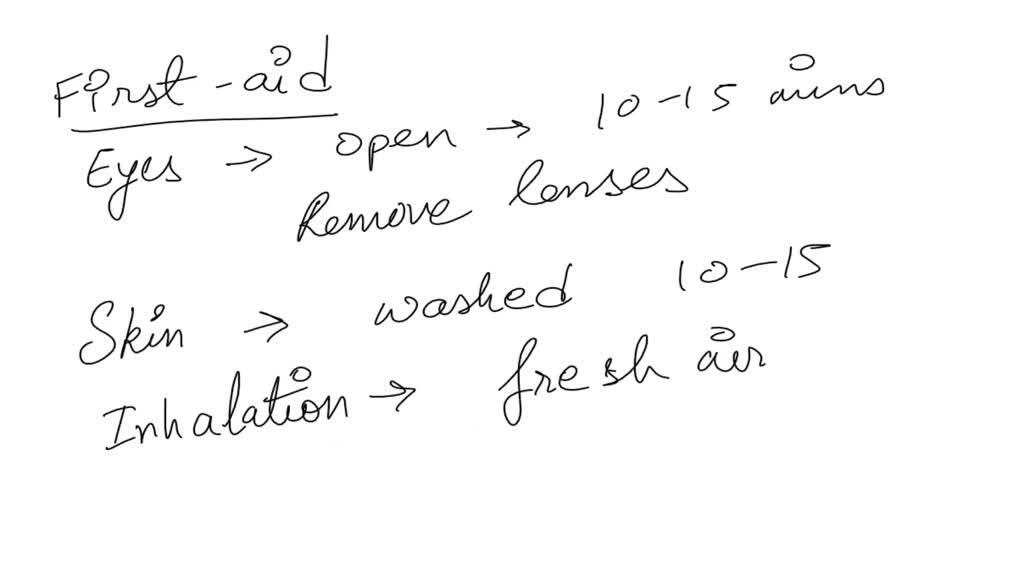 First-aid
Eyes → open → 10-15 mins
Remove lenses
Skin → washed 10-15
Inhalation → fresh air